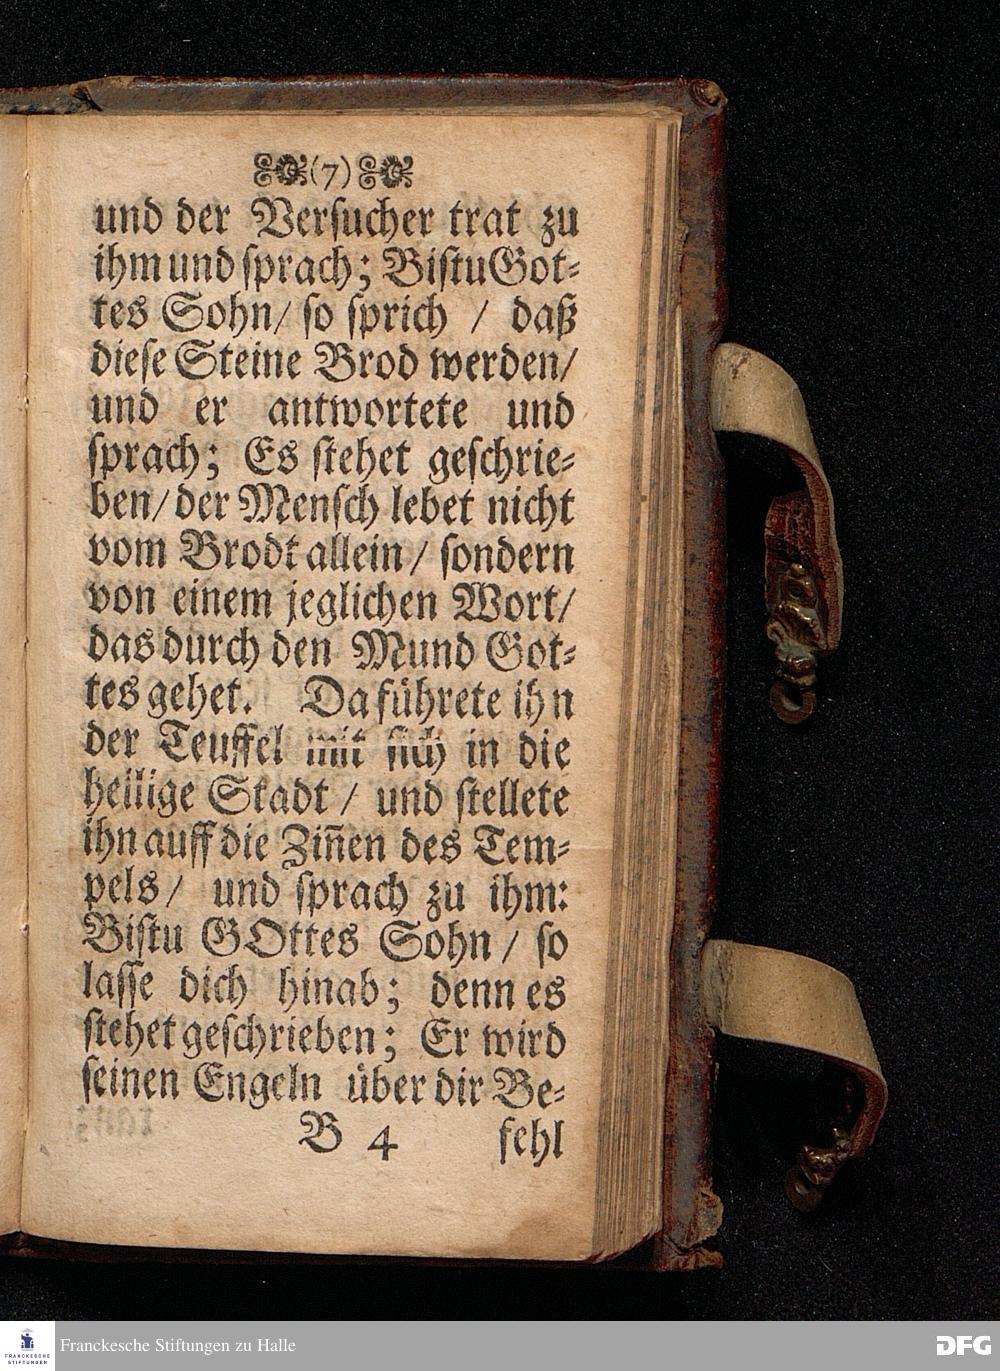 (7)
und der Versucher trat zu
ihm und sprach; Bistu Got-
tes Sohn/ so sprich / daß
diese Steine Brod werden/
und er antwortete und
sprach; Es stehet geschrie-
ben/ der Mensch lebet nicht
vom Brodt allein/ sondern
von einem jeglichen Wort/
das durch den Mund Got-
tes gehet. Da führete ihn
der Teuffel mit sich in die
heilige Stadt / und stellete
ihn auff die Zin̄en des Tem-
pels/ und sprach zu ihm:
Bistu GOttes Sohn/ so
lasse dich hinab; denn es
stehet geschrieben; Er wird
seinen Engeln über dir Be-
B 4 fehl
FRANCKESCHE STIFTUNGEN
Franckesche Stiftungen zu Halle
DFG